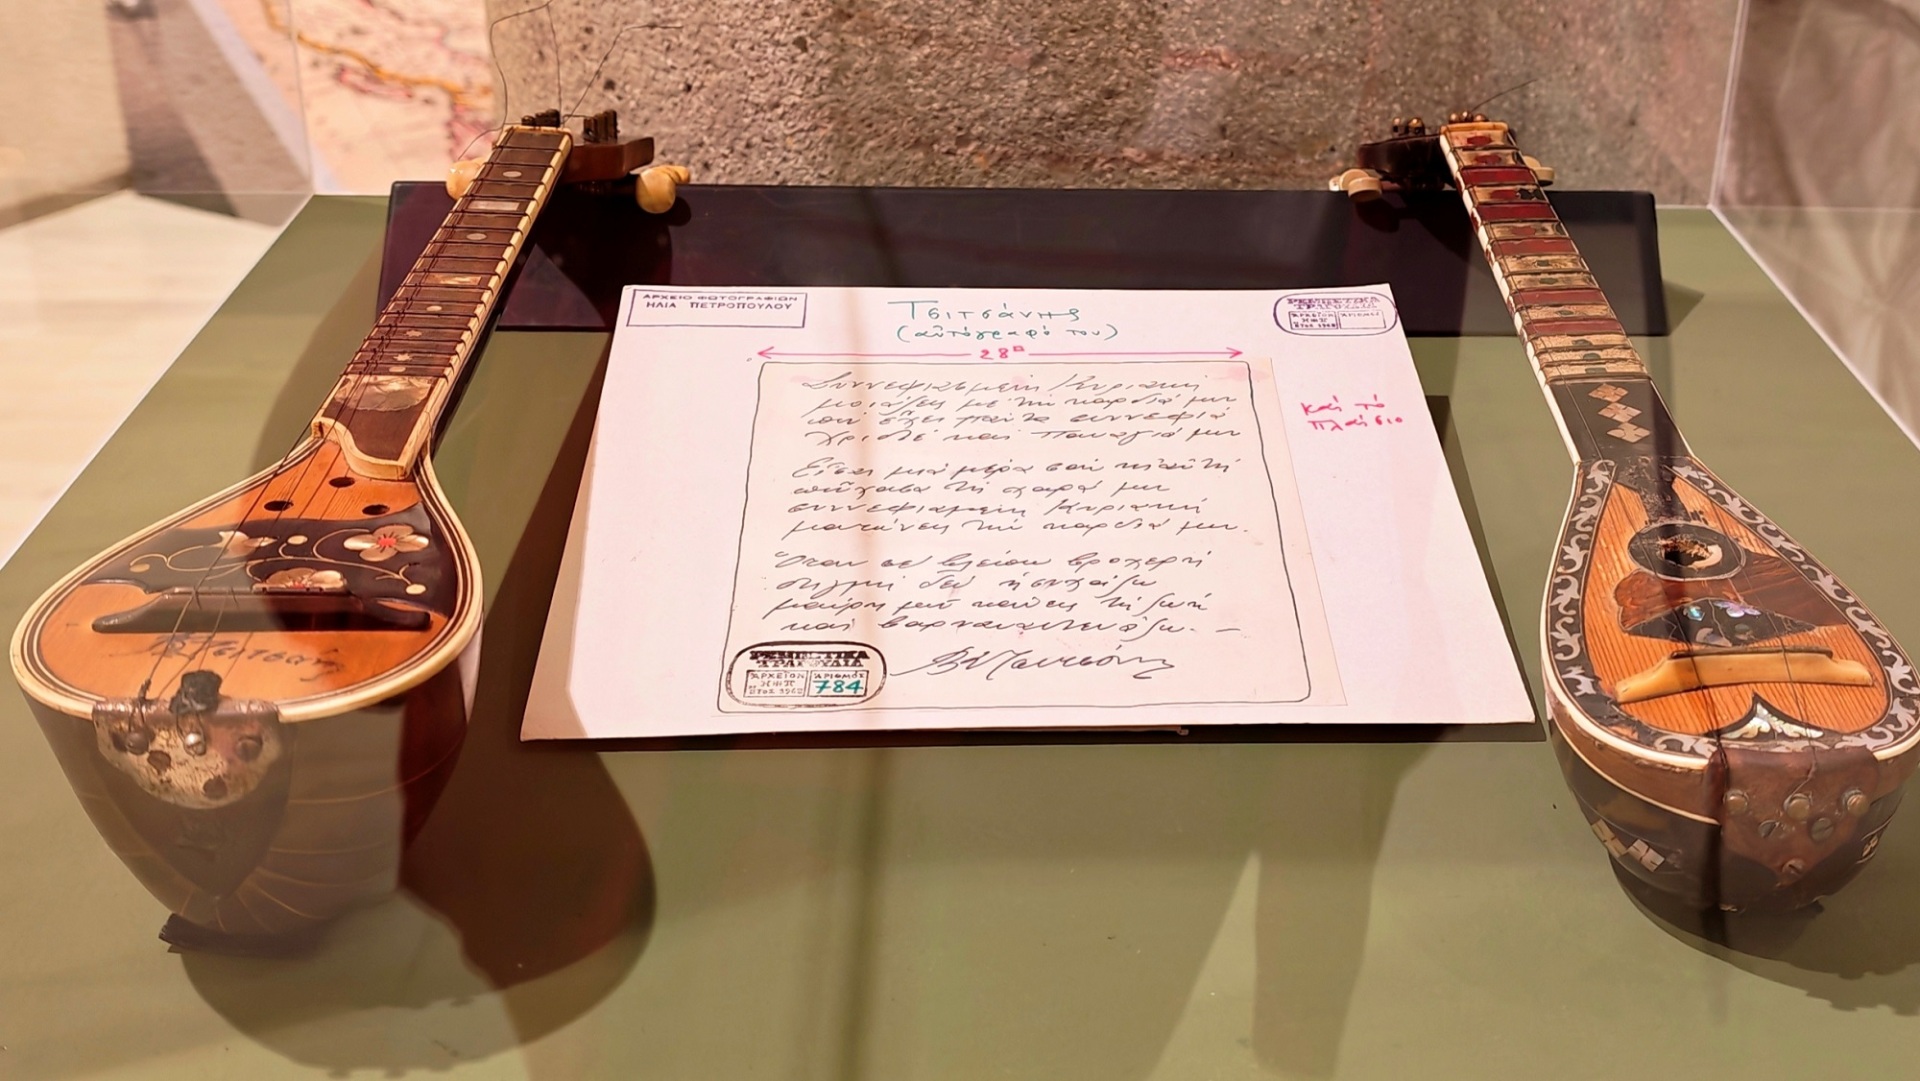 ΑΡΧΕΙΟ ΦΩΤΟΓΡΑΦΙΩΝ
ΗΛΙΑ ΠΕΤΡΟΠΟΥΛΟΥ
Τσιτσάνης
(αὐτόγραφό του)
ΡΕΜΠΕΤΙΚΑ
ΤΡΑΓΟΥΔΙΑ
ΑΡΧΕΙΟΝ
ΗΠ
ΕΤΟΣ 1968
ΑΡΙΘΜΟΣ
28
καὶ τὸ
πλαίσιο
Συννεφιασμένη Κυριακή
μοιάζεις με την καρδιά μου
που έχει πάντα συννεφιά
Χριστέ και Παναγιά μου
Είσαι μιά μέρα σαν κι' αυτή
που έχασα τη χαρά μου
συννεφιασμένη Κυριακή
ματώνεις την καρδιά μου.
Όταν σε βλέπω βροχερή
στιγμή δεν ησυχάζω
μαύρη μού κάνεις τη ζωή
και βαρυαναστενάζω. —
Β Τσιτσάνης
ΡΕΜΠΕΤΙΚΑ
ΤΡΑΓΟΥΔΙΑ
ΑΡΧΕΙΟΝ
ΗΠ
ΕΤΟΣ 1968
ΑΡΙΘΜΟΣ
784
Β Τσιτσάνης